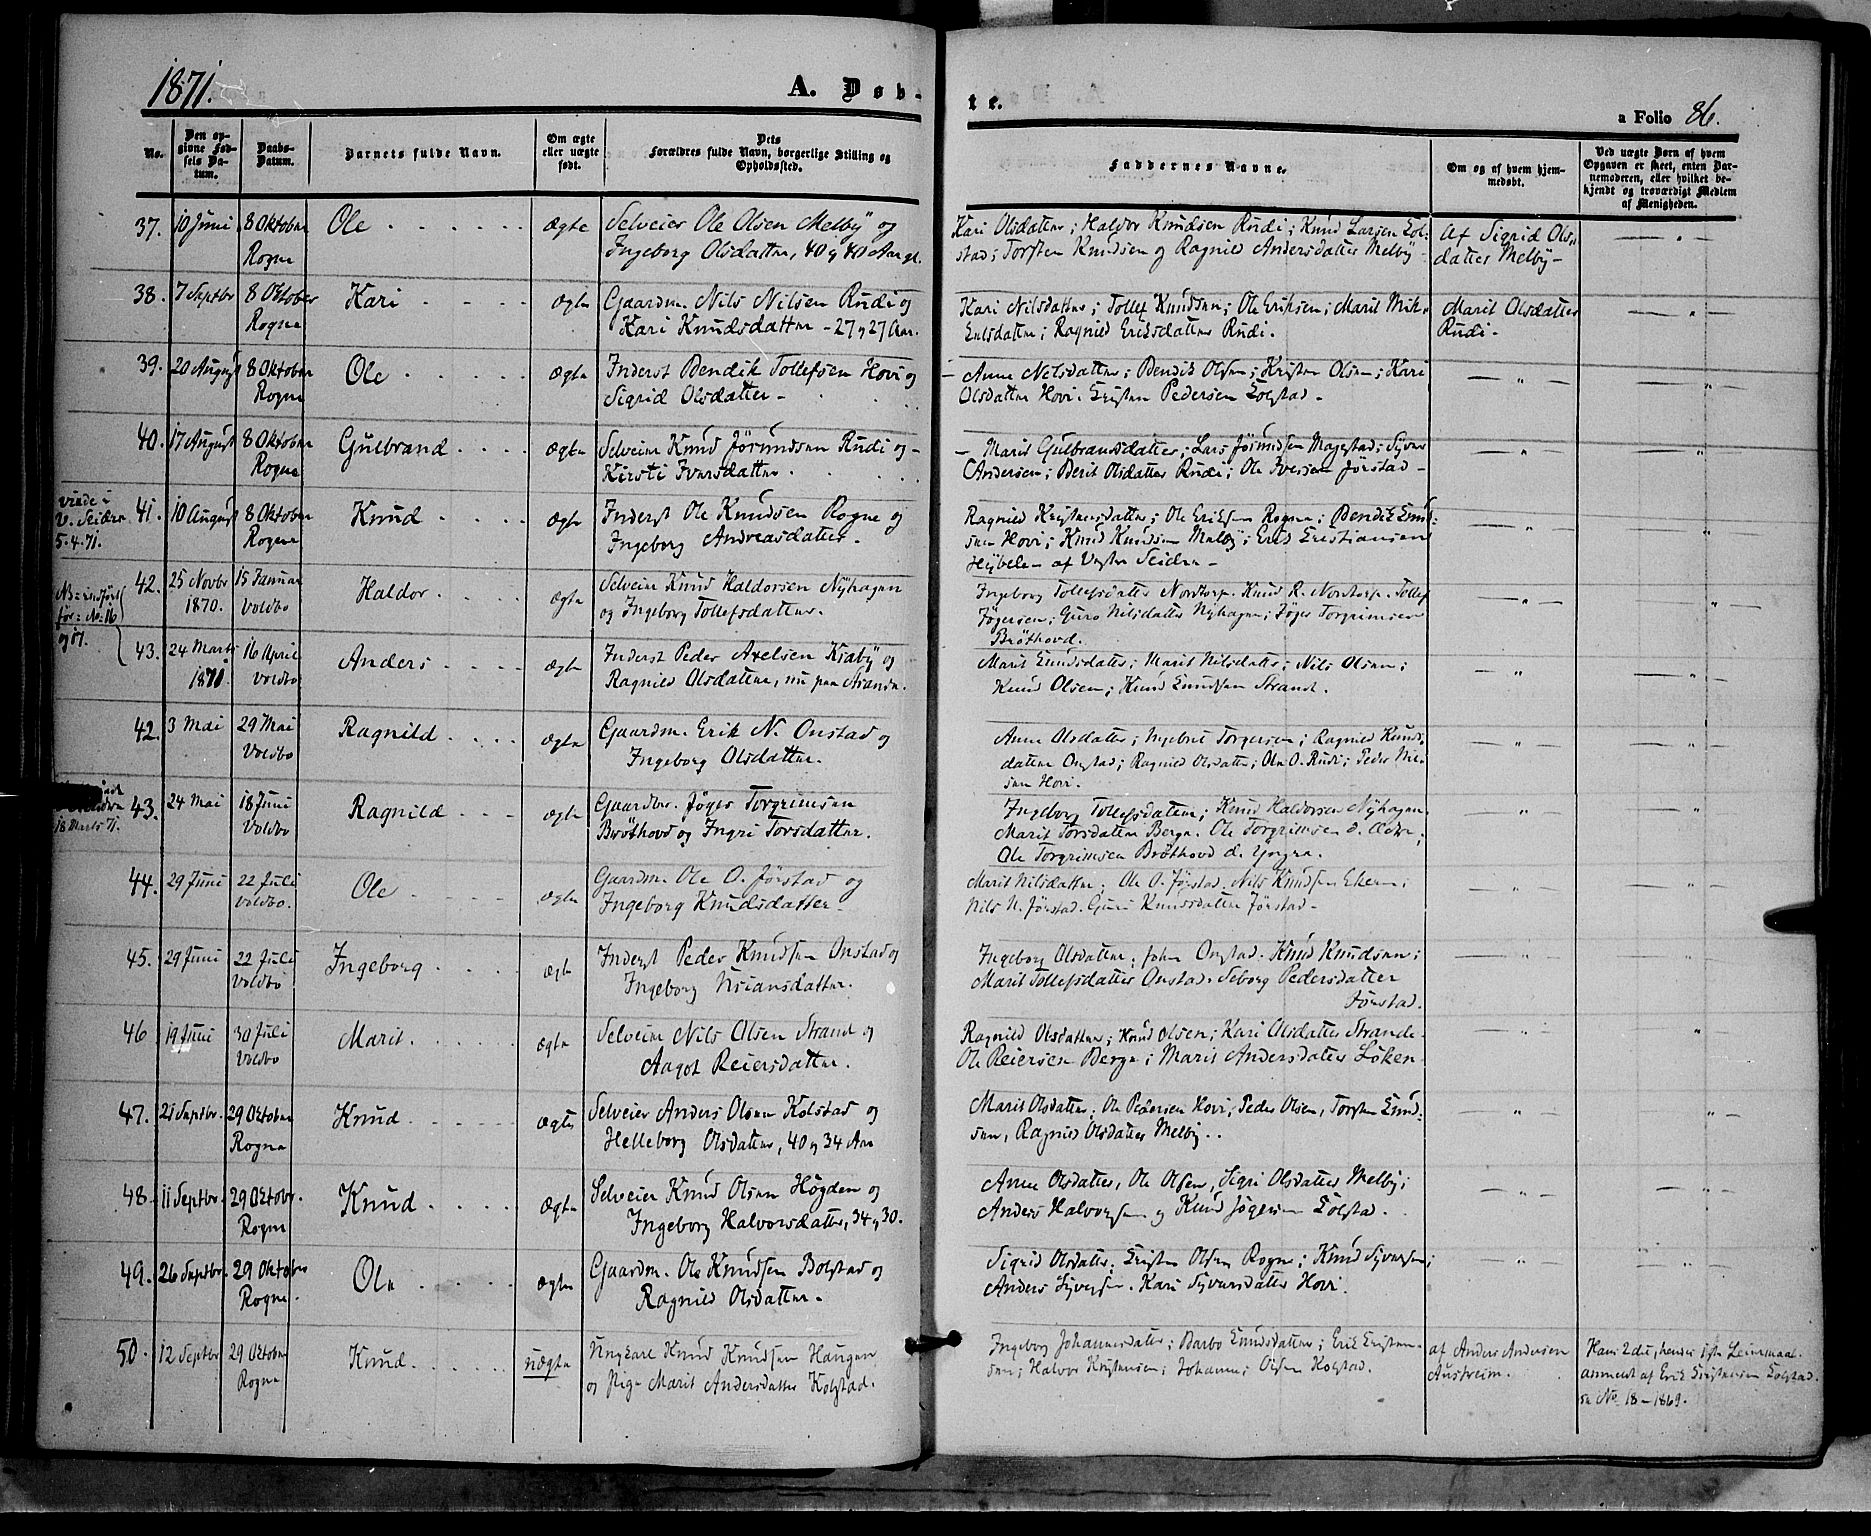 1871.
A. Døb-
te.
a Folio 86.
No.
Den op-
givne Fød-
sels Da-
tum.
Daabs-
Datum.
Barnets fulde Navn.
Om ægte
eller uægte
født.
Dets
Forældres fulde Navn, borgerlige Stilling og
Opholdssted.
Faddernes Navne.
Om og af hvem hjem-
medøbt.
Ved uægte Børn af hvem
Opgaven er skeet, enten Bar-
nemoderen, eller hvilket be-
kjendt og troværdigt Medlem
af Menigheden.
37. 10 Juni 8 Oktober Ole Ægte Selveier Ole Olsen Melbÿ og
Rogne Ingeborg Olsdatter, 40 og 40 Aar gl.
Kari Olsdatter; Haldor Knudsen Rudi; Knud Larsen Kol-
stad; Torsten Knudsen og Ragnild Andersdatter Melby -
Af Sigrid Ols-
datter Melby -
38. 7 Septbr 8 Oktober Kari Ægte Gaardm. Nils Nilsen Rudi og
Rogne Kari Knudsdatter - 27 og 27 Aar.
Kari Nilsdatter; Tollef Knudsen; Ole Eriksen; Marit Mik-
kelsdatter; Ragnild Eriksdatter Rudi.
Marit Olsdatter
Rudi -
39. 20 August 8 Oktober Ole Ægte Inderst Bendik Tollefsen Hovi og
Rogne Sigrid Olsdatter -
- Anne Nilsdatter; Bendik Olsen; Kristen Olsen; Kari
Olsdatter Hovi. Kristen Pedersen Kolstad -
40. 17 August 8 Oktober Gulbrand Ægte Selveier Knud Jørundsen Rudi og -
Rogne Kirsti Iversdatter.
- Marit Gulbransdatter; Lars Jørundsen Magestad; Syver
Andersen; Berit Olsdatter Rudi; Ole Iversen Jørstad -
viede i
V. Slidre
5.4.71.
41. 10 August 8 Oktober Knud Ægte Inderst Ole Knudsen Rogne og
Rogne Ingeborg Andreasdatter.
Ragnild Kristensdatter; Ole Eriksen Rogne; Bendik Knud-
sen Hovi; Knud Knudsen Melbÿ; Erik Kristiansen
Høÿbele - af Vestre Slidre -
NB: indført
før: No: 16
og 17.
42. 25 Novbr 15 Januar Haldor Ægte Selveier Knud Haldorsen Nÿhagen
1870. Voldbo og Ingeborg Tollefsdatter.
Ingeborg Tollefsdatter Nordtorp. Knud R. Nordtorp. Tollef
Jøgersen; Guro Nilsdatter Nyhagen; Jøger Torgrimsen
Brøthovd.
43. 24 Marts 16 April Anders Ægte Inderst Peder Axelsen Kiabÿ og
1871. Voldbo Ragnild Olsdatter, nu paa Strande.
Marit Knudsdatter; Marit Nilsdatter; Nils Olsen;
Knud Olsen; Knud Knudsen Strand.
42. 3 Mai 29 Mai Ragnild Ægte Gaardm. Erik N. Onstad og
Voldbo Ingeborg Olsdatter.
Anne Olsdatter; Ingebrit Torgersen; Ragnild Knuds-
datter Onstad; Ragnild Olsdatter; Ole O. Rudi; Peder Niel-
sen Hovi.
18 Marts 71.
43. 24 Mai 18 Juni Ragnild Ægte Gaardbr. Jøger Torgrimsen
Voldbo Brøthovd og Ingri Torsdatter.
Ingeborg Tollefsdatter; Knud Haldorsen Nÿhagen.
Marit Torsdatter Berge. Ole Torgrimsen d. Ældre;
Ole Torgrimsen Brøthovd d. Yngre.
44. 29 Juni 22 Juli Ole Ægte Gaardm. Ole O. Jørstad og
Voldbo. Ingeborg Knudsdatter -
Marit Nilsdatter; Ole O. Jørstad. Nils Knudsen Ekern;
Nils N. Jørstad. Guri Knudsdatter Jørstad -
45. 29 Juni 22 Juli Ingeborg Ægte Inderst Peder Knudsen Onstad og
Voldbo Ingeborg Kriansdatter.
Ingeborg Olsdatter; John Onstad. Knud Knudsen;
Marit Tollefsdatter Onstad. Seborg Pedersdatter
Jørstad.
46 19 Juni 30 Juli Marit. Ægte Selveier Nils Olsen Strand og
Voldbo Aagot Reiersdatter.
Ragnild Olsdatter; Knud Olsen; Kari Olsdatter Strande -
Ole Reiersen Berge; Marit Andersdatter Løken -
47. 21 Septbr. 29 Oktober Knud Ægte Selveier Anders Olsen Kolstad og
Rogne Helleborg Olsdatter, 40 og 34 Aar
Marit Olsdatter; Ole Pedersen Hovi; Peder Olsen, Torsten Knud-
sen, Ragnild Olsdatter Melbÿ.
48 11 Septbr. 29 Oktobr. Knud Ægte Selveier Knud Olsen Høgden og
Rogne Ingeborg Halvorsdatter, 34 og 30.
Anne Olsdatter, Ole Olsen, Sigri Olsdatter Melby;
Anders Halvorsen og Knud Jøgersen Kolstad.
49. 26 Septbr. 29 Oktober Ole Ægte Gaardm. Ole Knudsen Bolstad og
Rogne. Ragnild Olsdatter -
Sigrid Olsdatter; Kristen Olsen Rogne; Knud Syversen;
Anders Syversen. Kari Syversdatter Hovi.
50. 12 Septbr 29 Oktober Knud. Uægte Ungkarl Knud Knudsen Haugen
Rogne og Pige Marit Andersdatter Kolstad.
Ingeborg Johannesdatter; Barbo Knudsdatter; Erik Kristen-
sen; Halvor Kristensen; Johannes Olsen Kolstad.
af Anders Andersen
Austreim.
Hans 2det, hendes 1ste Leiermaal.
anmeldt af Erik Kristensen Kolstad.
se No. 18 - 1869.